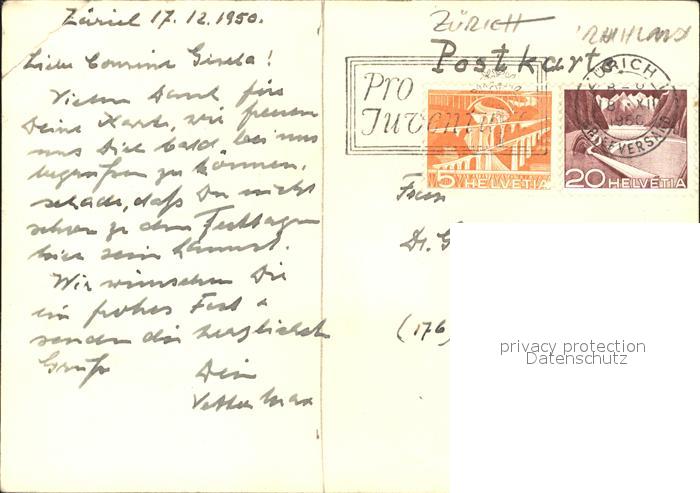 Zürich 17.12.1950.
Liebe Cousine Gisela!
Vielen Dank, für
Deine Karte, wir freuen
uns Dich bald bei uns
begrüßen zu können,
schade, daß Du nicht
schon zu den Festtagen
hier sein kannst.
Wir wünschen Dir
ein frohes Fest &
senden dir herzliche
Grüße
Dein
Vetter Max
ZÜRICH
Postkarte
Pro
Juventute
ZÜRICH
1950
BRIEFVERSAND
5 HELVETIA
20 HELVETIA
Frau
Dr. G
(176)
privacy protection
Datenschutz